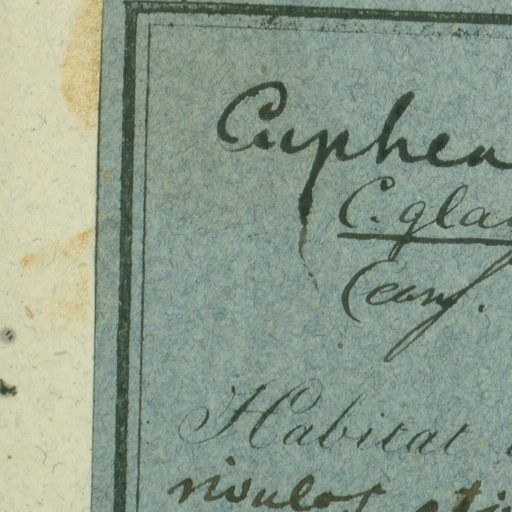 Cuphea
C. gla
(conf.
Habitat
rivulos